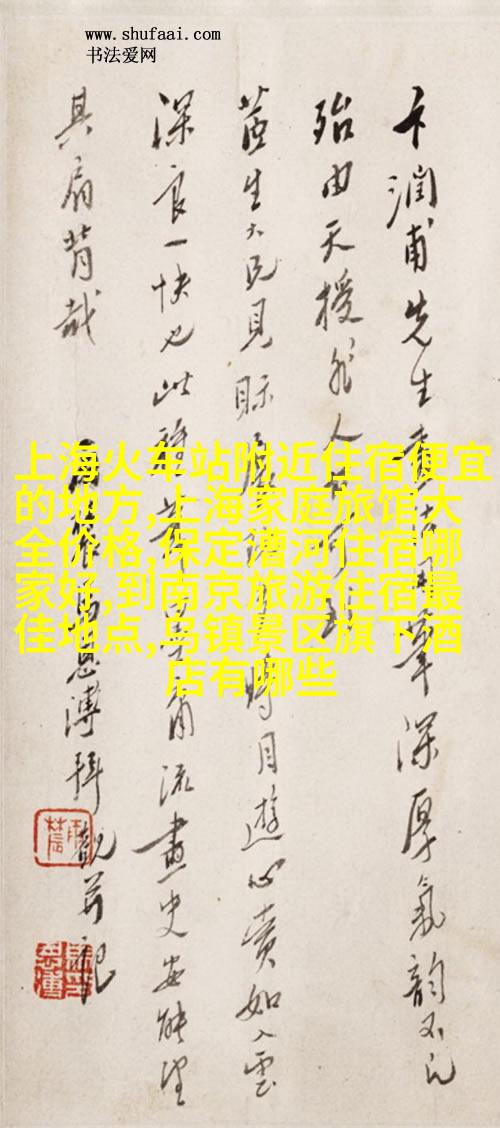 www.shufaai.com
书法爱网
上海火车站附近住宿便宜
的地方,上海家庭旅馆大
全价格,保定漕河住宿哪
家好,到南京旅游住宿最
佳地点,乌镇景区旗下酒
店有哪些
卞润甫先生画笔深厚气韵不凡
殆由天授非人
茝生大兄见眎展时目游心赏如入云
深良一快也此流画史安能望
其肩背哉
溥拜观并记